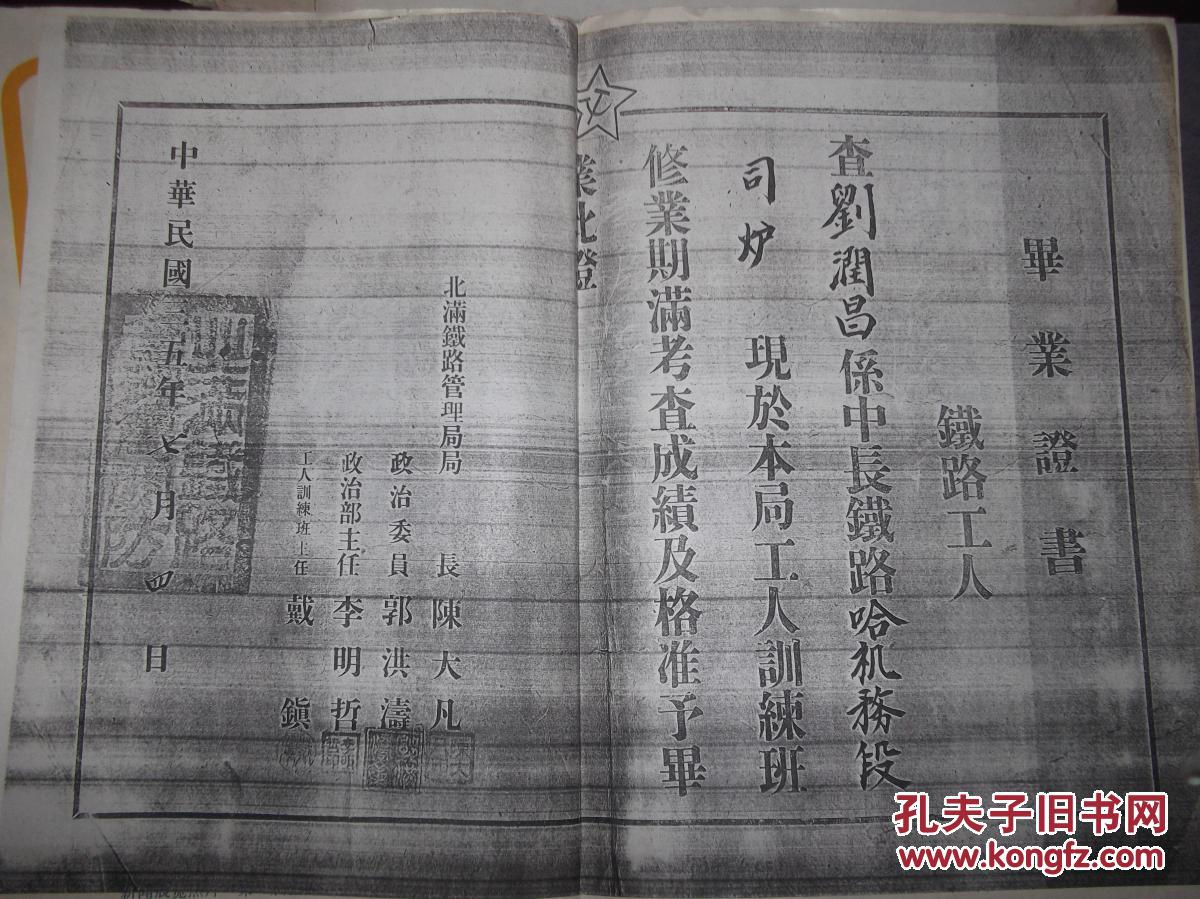 畢業證書
鐵路工人
查劉潤昌係中長鐵路哈机務段
司炉 現於本局工人訓練班
修業期滿考查成績及格准予畢
業此證
北滿鐵路管理局局 長 陳大凡
政治委員 郭洪濤
政治部主任 李明哲
工人訓練班主任 戴 鎮
中華民國三五年七月四日
孔夫子旧书网
www.kongfz.com